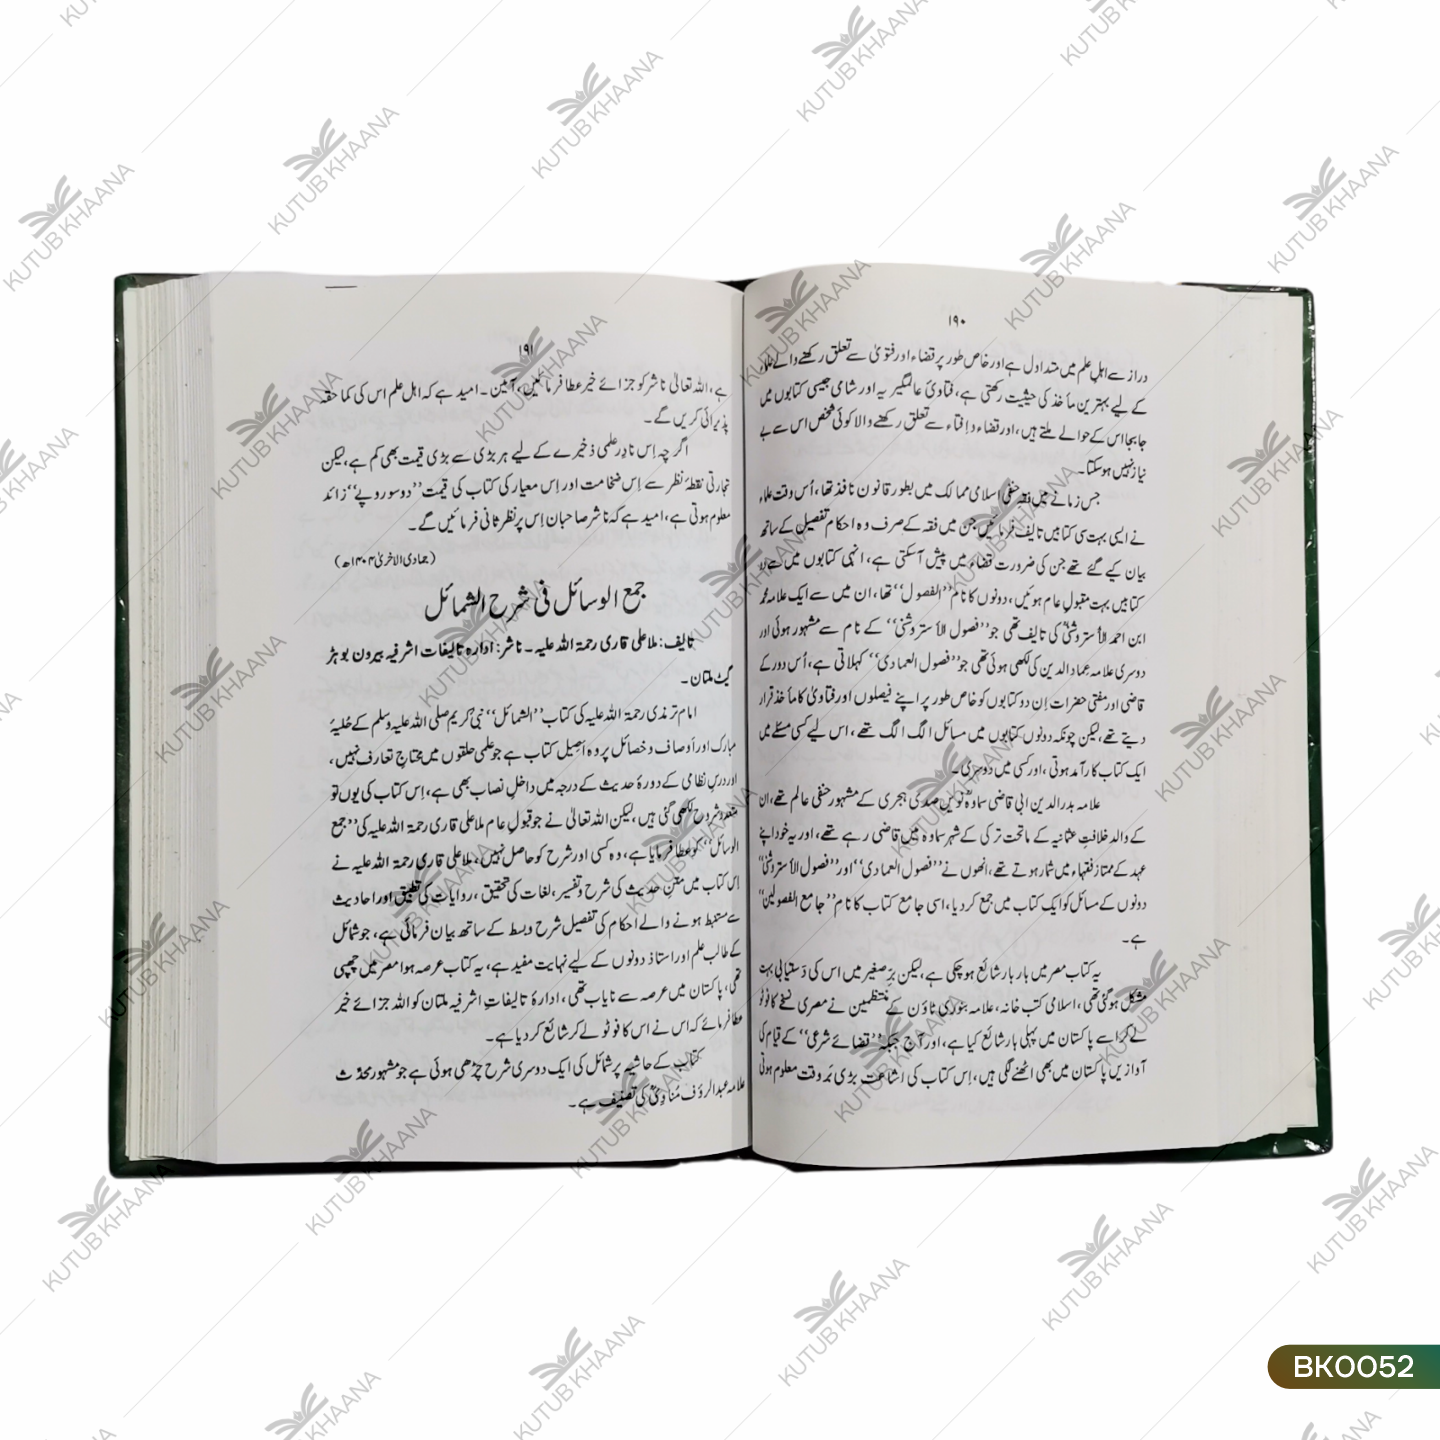 ۱۹۰
دراز سے اہلِ علم میں متداول ہے اور خاص طور پر قضاء اور فتویٰ سے تعلق رکھنے والے علماء
کے لیے بہترین مأخذ کی حیثیت رکھتی ہے، فتاویٰ عالمگیریہ اور شامی جیسی کتابوں میں
جابجا اس کے حوالے ملتے ہیں، اور قضاء و اِفتاء سے تعلق رکھنے والا کوئی شخص اس سے بے
نیاز نہیں ہوسکتا۔
جس زمانے میں فقہِ حنفی اسلامی ممالک میں بطور قانون نافذ تھا، اُس وقت علماء
نے ایسی بہت سی کتابیں تالیف فرمائیں جن میں فقہ کے صرف وہ احکام تفصیل کے ساتھ
بیان کیے گئے تھے جن کی ضرورت قضاء میں پیش آسکتی ہے، انہی کتابوں میں سے دو
کتابیں بہت مقبولِ عام ہوئیں، دونوں کا نام ’’الفصول‘‘ تھا، ان میں سے ایک علامہ محمد
ابن احمد الأستروشنیؒ کی تالیف تھی جو ’’فصول الأستروشنی‘‘ کے نام سے مشہور ہوئی اور
دوسری علامہ عماد الدین کی لکھی ہوئی تھی جو ’’فصول العمادی‘‘ کہلاتی ہے، اُس دور کے
قاضی اور مفتی حضرات اِن دو کتابوں کو خاص طور پر اپنے فیصلوں اور فتاویٰ کا مأخذ قرار
دیتے تھے، لیکن چونکہ دونوں کتابوں میں مسائل الگ الگ تھے، اس لیے کسی مسئلے میں
ایک کتاب کارآمد ہوتی، اور کسی میں دوسری۔
علامہ بدر الدین ابی قاضی سماوہؒ نویں صدی ہجری کے مشہور حنفی عالم تھے، ان
کے والد خلافتِ عثمانیہ کے ماتحت ترکی کے شہر سماوہ میں قاضی رہے تھے، اور یہ خود اپنے
عہد کے ممتاز فقہاء میں شمار ہوتے تھے، انھوں نے ’’فصول العمادی‘‘ اور ’’فصول الأستروشنی‘‘
دونوں کے مسائل کو ایک کتاب میں جمع کردیا، اسی جامع کتاب کا نام ’’جامع الفصولین‘‘
ہے۔
یہ کتاب مصر میں بار بار شائع ہوچکی ہے، لیکن برِصغیر میں اس کی دستیابی بہت
مشکل ہوگئی تھی، اسلامی کتب خانہ، علامہ بنوری ٹاؤن کے منتظمین نے مصری نسخے کا فوٹو
لے کر اسے پاکستان میں پہلی بار شائع کیا ہے، اور آج جبکہ ’’قضائے شرعی‘‘ کے قیام کی
آوازیں پاکستان میں بھی اٹھنے لگی ہیں، اِس کتاب کی اشاعت بڑی بَروقت معلوم ہوتی
۱۹۱
ہے، اللہ تعالیٰ ناشر کو جزائے خیر عطا فرمائیں، آمین۔ امید ہے کہ اہلِ علم اس کی کما حقہ
پذیرائی کریں گے۔
اگرچہ اِس نادِر علمی ذخیرے کے لیے ہر بڑی سے بڑی قیمت بھی کم ہے، لیکن
تجارتی نقطۂ نظر سے اِس ضخامت اور اِس معیار کی کتاب کی قیمت ’’دو سو روپے‘‘ زائد
معلوم ہوتی ہے، امید ہے کہ ناشر صاحبان اِس پر نظرِ ثانی فرمائیں گے۔
(جمادی الاخریٰ ۱۴۰۴ھ)
جمع الوسائل فی شرح الشمائل
تالیف: ملا علی قاری رحمۃ اللہ علیہ۔ ناشر: ادارہ تالیفات اشرفیہ بیرون بوہڑ
گیٹ ملتان۔
امام ترمذی رحمۃ اللہ علیہ کی کتاب ’’الشمائل‘‘ نبی کریم صلی اللہ علیہ وسلم کے حلیۂ
مبارک اور اَوصاف و خصائل پر وہ اَصیل کتاب ہے جو علمی حلقوں میں محتاجِ تعارف نہیں،
اور درسِ نظامی کے دورۂ حدیث کے درجہ میں داخلِ نصاب بھی ہے، اِس کتاب کی یوں تو
متعدد شروح لکھی گئی ہیں، لیکن اللہ تعالیٰ نے جو قبولِ عام ملا علی قاری رحمۃ اللہ علیہ کی ’’جمع
الوسائل‘‘ کو عطا فرمایا ہے، وہ کسی اور شرح کو حاصل نہیں، ملا علی قاری رحمۃ اللہ علیہ نے
اِس کتاب میں متنِ حدیث کی شرح و تفسیر، لغات کی تحقیق، روایات کی تطبیق اور احادیث
سے مستنبط ہونے والے احکام کی تفصیل شرح و بسط کے ساتھ بیان فرمائی ہے، جو شمائل
کے طالب علم اور استاذ دونوں کے لیے نہایت مفید ہے، یہ کتاب عرصہ ہوا مصر میں چھپی
تھی، پاکستان میں عرصہ سے نایاب تھی، ادارۂ تالیفاتِ اشرفیہ ملتان کو اللہ جزائے خیر
عطا فرمائے کہ اس نے اس کا فوٹو لے کر شائع کردیا ہے۔
کتاب کے حاشیہ پر شمائل کی ایک دوسری شرح چڑھی ہوئی ہے جو مشہور محدّث
علامہ عبدالرؤف مُناویؒ کی تصنیف ہے۔
KUTUB KHAANA
BK0052